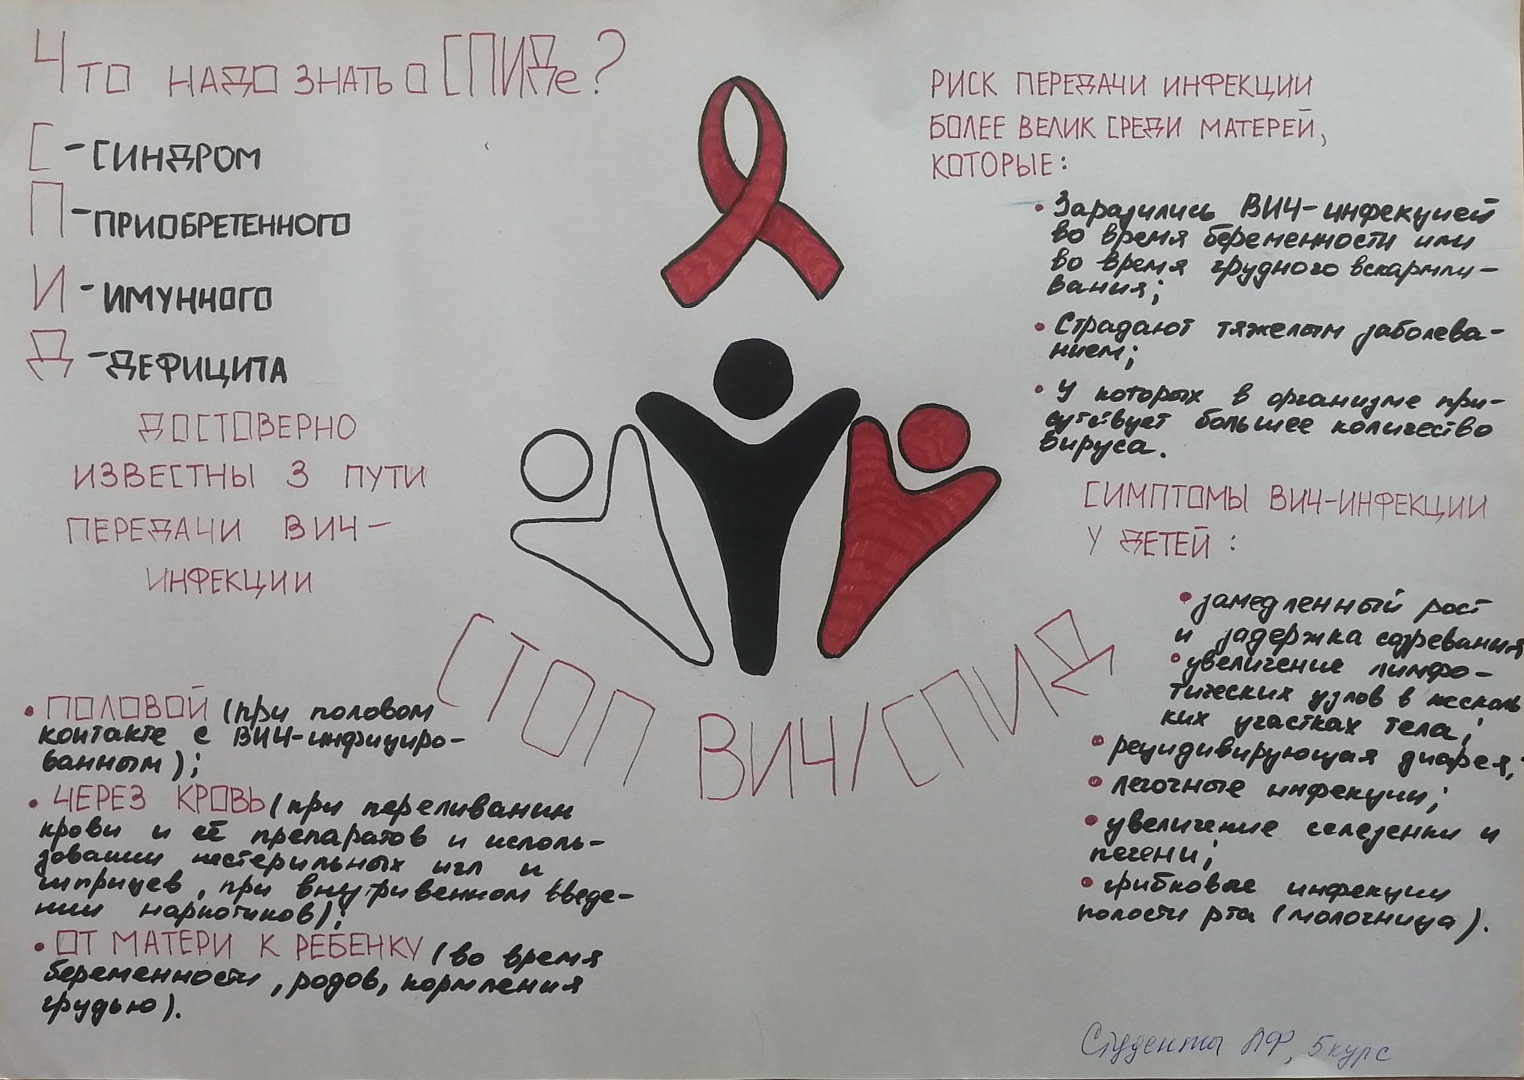 Что надо знать о СПИДе?
С - СИНДРОМ
П - ПРИОБРЕТЕННОГО
И - ИМУННОГО
Д - ДЕФИЦИТА
ДОСТОВЕРНО
ИЗВЕСТНЫ 3 ПУТИ
ПЕРЕДАЧИ ВИЧ-
ИНФЕКЦИИ
• ПОЛОВОЙ (при половом
контакте с ВИЧ-инфициро-
ванным);
• ЧЕРЕЗ КРОВЬ (при переливании
крови и её препаратов и исполь-
зовании нестерильных игл и
шприцев, при внутривенном введе-
нии наркотиков);
• ОТ МАТЕРИ К РЕБЕНКУ (во время
беременности, родов, кормления
грудью).
СТОП ВИЧ/СПИД
РИСК ПЕРЕДАЧИ ИНФЕКЦИИ
БОЛЕЕ ВЕЛИК СРЕДИ МАТЕРЕЙ,
КОТОРЫЕ:
• Заразились ВИЧ-инфекцией
во время беременности или
во время грудного вскармли-
вания;
• Страдают тяжелым заболева-
нием;
• У которых в организме при-
сутствует большее количество
вируса.
СИМПТОМЫ ВИЧ-ИНФЕКЦИИ
У ДЕТЕЙ:
• замедленный рост
и задержка созревания
• увеличение лимфо-
тических узлов в несколь
ких участках тела;
• рецидивирующая диарея;
• легочные инфекции;
• увеличение селезенки и
печени;
• грибковые инфекции
полости рта (молочница).
Студенты ЛФ, 5 курс